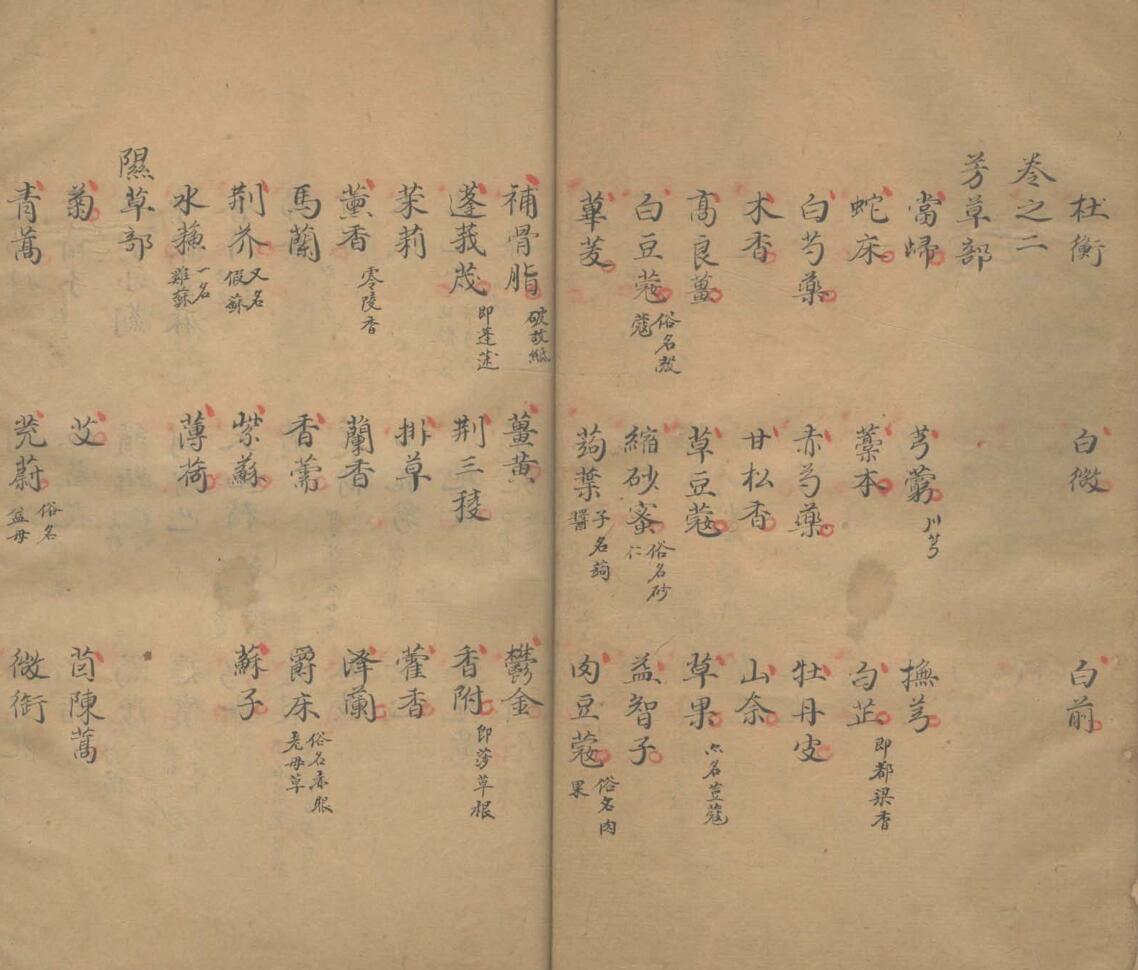 杜衡 白微 白前
卷之二
芳草部
當歸 芎藭 川芎 撫芎
蛇床 藁本 白芷 即都梁香
白芍藥 赤芍藥 牡丹皮
木香 甘松香 山奈
高良薑 草豆蔻 草果 亦名荳蔻
白豆蔻 俗名殼蔻 縮砂蜜 俗名砂仁 益智子
蓽茇 蒟葉 子名蒟醬 肉豆蔻 俗名肉果
補骨脂 破故紙 薑黃 鬱金
蓬莪茂 即蓬蒁 荆三稜 香附 即莎草根
茉莉 排草 藿香
薰香 零陵香 蘭香 澤蘭
馬蘭 香薷 爵床 俗名赤眼老母草
荆芥 又名假蘇 紫蘇 蘇子
水蘇 一名雞蘇 薄荷
隰草部
菊 艾 茵陳蒿
青蒿 茺蔚 俗名益母 微銜